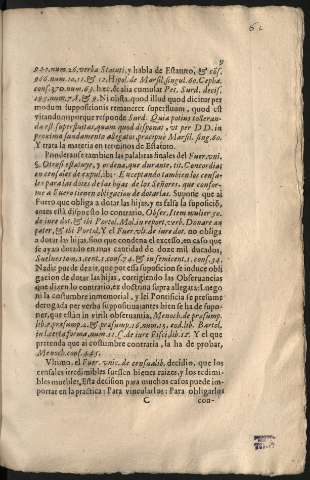 9
947.num.26.verba Statuti, y habla de Estatuto, & cõs.
966.num.10.11.& 12. Hipol. de Marsil. singul. 60. Cepha.
cons. 370. num. 63. hæc, & alia cumulat Pet. Surd. decis.
195. num. 7.8. & 9. Ni obsta, quod illud quod dicitur per
modum suppositionis remaneret superfluum, quod est
vitandum, porque responde Surd. Quia potius toleran-
da est superfluitas, quam quod disponat, vt per DD. in
proximo fundamento allegatos, præcipuè Marsil. sing. 60.
Y trata la materia en terminos de Estatuto.
Ponderase tambien las palabras finales del Fuer. vni.
§. Otrosi estatuye, y ordena, que durante, tit. Concordias
en censales de expuls. ibi: Exceptando tambien los censa-
les para las dotes de las hijas de los Señores, que confor-
me a Fuero tienen obligacion de dotarlas. Supone que al
Fuero que obliga a dotar las hijas, y es falsa la suposiciõ,
antes està dispuesto lo contrario, Obser. Item mulier 30.
de iure dot. & ibi Portol. Mol. in report. verb. Donare an
pater, & ibi Portol. Y el Fuer. vlt. de iure dot. no obliga
a dotar las hijas, sino que condena el excesso, en caso que
se ayan dotado en mas cantidad de doze mil ducados,
Suelues tom. 1. cent. 1. cons. 74. & in semicent. 1. cons. 34.
Nadie puede dezir, que por essa suposicion se induce obli-
gacion de dotar las hijas, corrigiendo las Observancias
que dizen lo contrario, ex doctrina supra allegata: Luego
ni la costumbre inmemorial, y lei Pontificia se presume
derogada per verba suppositiva, antes bien se ha de supo-
ner, que estàn in viridi observantia, Menoch. de præsump.
lib. 2. præsump. 2. & præsump. 16. num. 15. eod. lib. Bartol.
in l. certa forma, num. 11. C. de iure Fisci, lib. 12. Y el que
pretenda que ai costumbre contraria, la ha de probar,
Menoch. cons. 445.
Vltimo, el Fuer. vnic. de censualib. decidiò, que los
censales irredimibles fuessen bienes raizes, y los redimi-
bles muebles, Esta decision para muchos casos puede im-
portar en la practica: Para vincularlos: Para obligarlos
C con-